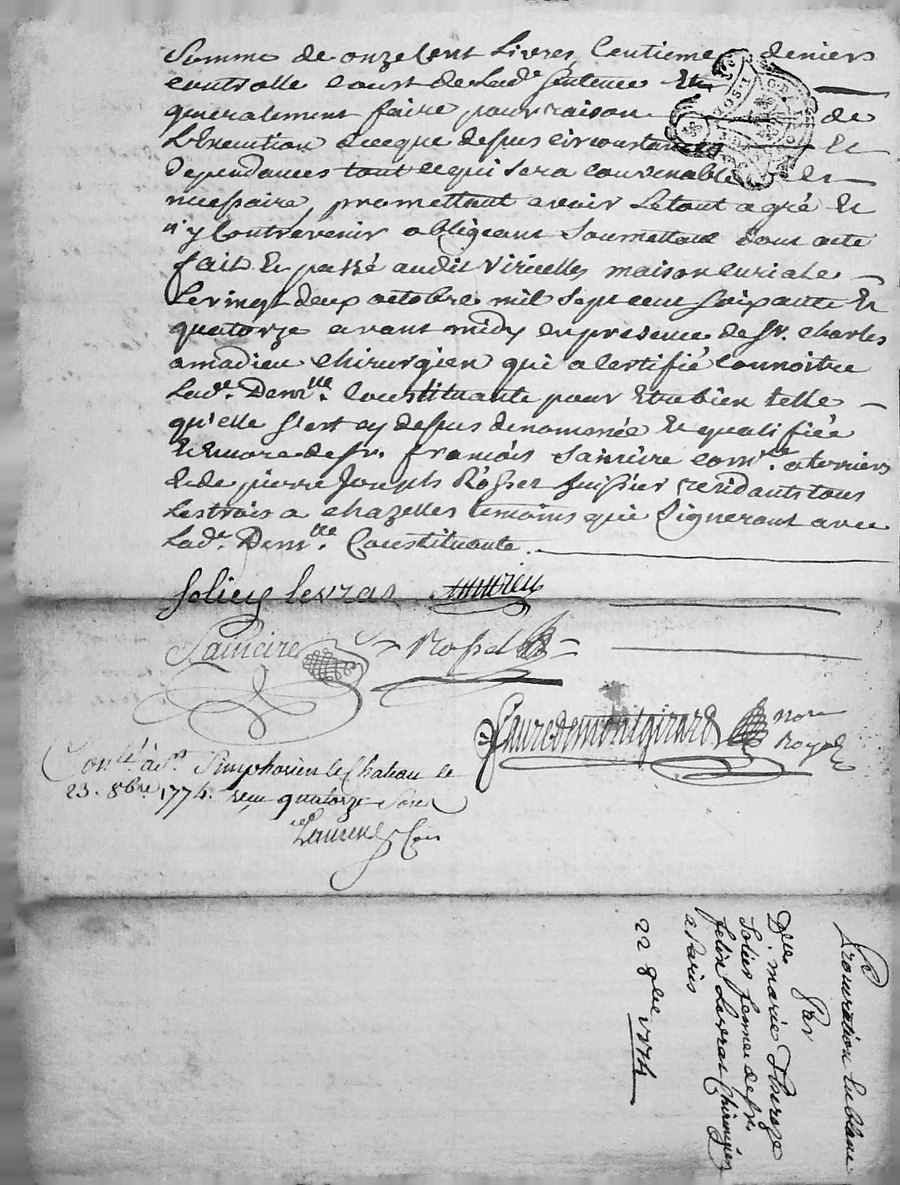 Somme de onze Cent Livres, Centieme deniers
controlle Coust de Lad.e Sentence Et
generalement faire pour raison de
L'Execution de ceque dessus circonstances Et
dependances tout cequi sera convenable Et
necessaire, promettant avoir Letout agré Et
n'y Contrevenir obligeant Soumettant Dont acte
fait Et passé audit Viricelles maison curiale
Levingt deux octobre mil Sept cent soixante Et
quatorze avant midy En presence de Sr. Charles
amadieu chirurgien qui a Certifié Connoitre
Lad.e Dem.lle Constituante pour Etre bien telle
qu'elle S'est cy dessus denommée Et qualifiée
Encore de Sr. françois Com.re aterriers
Et de pierre Joseph huissier residants tous
Lestrois a chazelles temoins qui Signeront avec
Lad.e Dem.lle Constituante.
Solier levras
Faure de montgirard nore
Royal
Con.lé à St. Simphorien le Chateau le
23. 8bre. 1774. reçu quatorze Sous
Procuration en blanc
Par
D.lle marie
Solier femme de Sr.
felix Levras Chirurgien
a Paris
22 8bre 1774